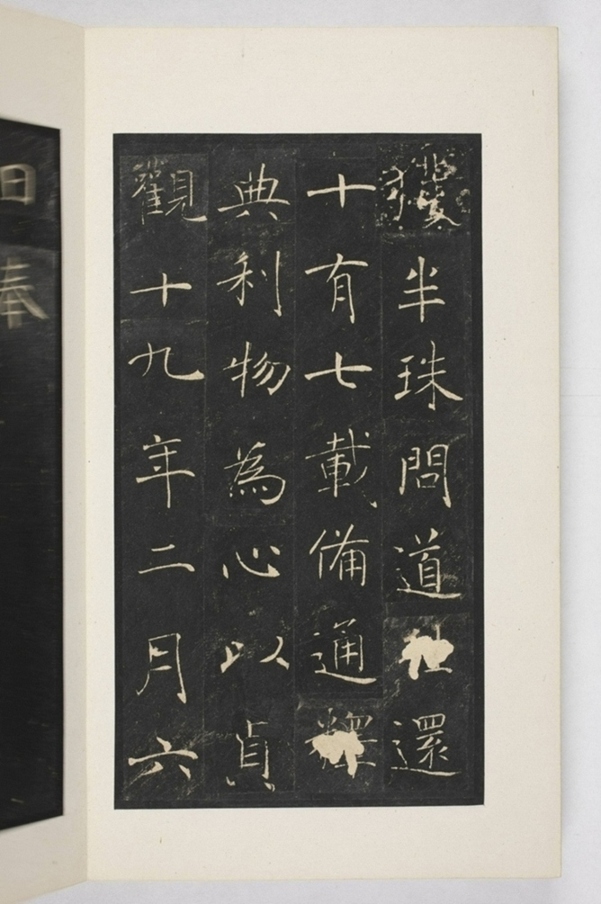 獲半珠問道還
十有七載備通釋
典利物為心以貞
觀十九年二月六
日奉